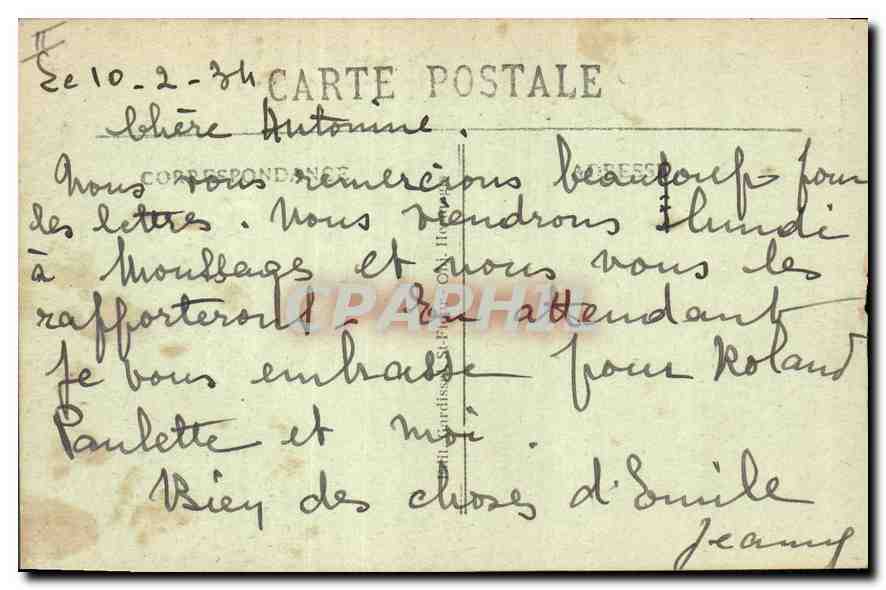 Le 10-2-34
CARTE POSTALE
Chère Antonine.
CORRESPONDANCE ADRESSE
Nous vous remercions beaucoup pour
les lettres. Nous viendrons lundi
à Moussages et nous vous les
rapporteront. En attendant
je vous embrasse pour Roland
Paulette et moi.
Bien des choses d'Emile
Jeanny
CPAPHIL
St-Flour